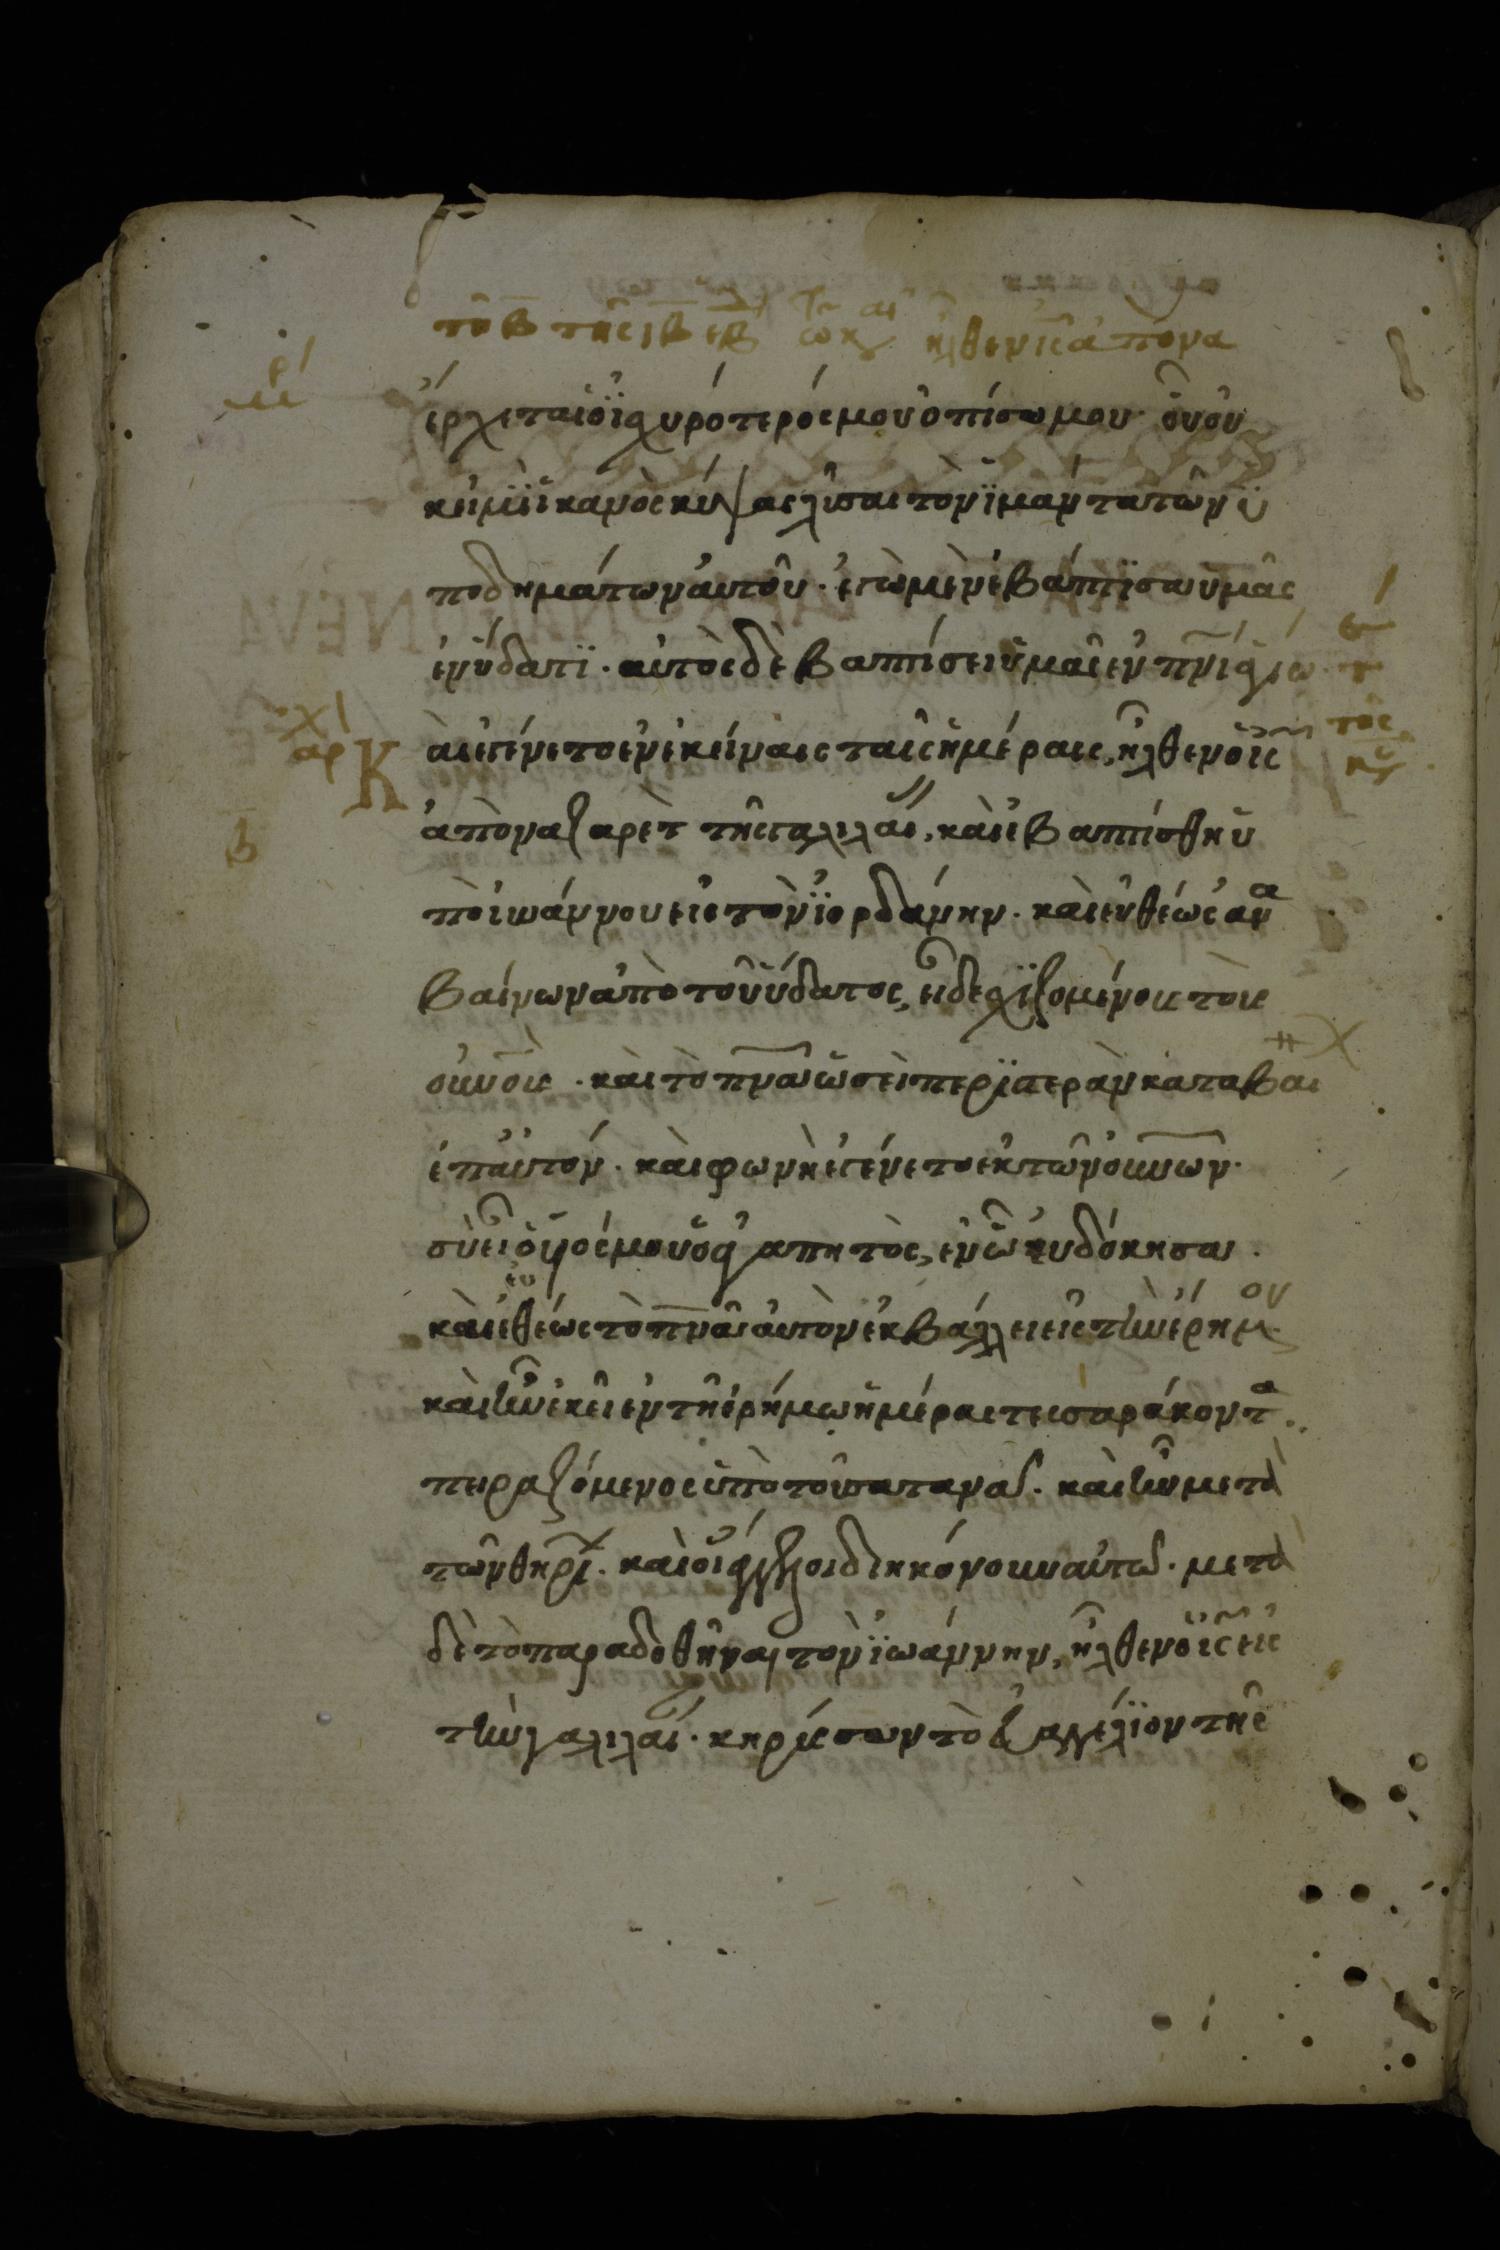 ἔρχεται ὁ ἰσχυρότερός μου ὀπίσω μου· οὗ οὐ
κ εἰμὶ ἱκανὸς κύψας λῦσαι τὸν ἱμάντα τῶν ὑ
ποδημάτων αὐτοῦ· ἐγὼ μὲν ἐβάπτϊσα ὑμᾶς
ἐν ὕδατϊ· αὐτὸς δὲ βαπτίσει ὑμᾶς ἐν πνὶ ἁγίω
Κ αὶ ἐγένετο ἐν ἐκείναις ταῖς ἡμέραις, ἦλθεν ὁ ις
ἀπὸ ναζαρὲτ τῆς γαλιλαί, καὶ ἐβαπτίσθη ὑ
πὸ ἰωάννου εἰς τὸν ϊορδάνην· καὶ εὐθέως ἀνα
βαίνων ἀπὸ τοῦ ὕδατος, εἶδε σχϊζομένους τοὺς
οὐνοὺς· καὶ τὸ πνα ὡσεὶ περϊστερὰν καταβαι
ἐπ' αὐτόν· καὶ φωνὴ ἐγένετο ἐκ τῶν οὐνων·
σὺ εἶ ὁ υἱός μου ὁ ἀγαπητὸς, ἐν ὧ ηὐδόκησα·
καὶ εὐθέως τὸ πνα αὐτὸν ἐκβάλλει εἰς τὴν ἔρημον
καὶ ἦν ἐκεῖ ἐν τῆ ἐρήμω ἡμέρας τεσσαράκοντα
πειραζόμενος ὑπὸ τοῦ σατανᾶ· καὶ ἦν μετὰ
τῶν θηρί· καὶ οἱ ἄγγελοι διηκόνουν αὐτῶ· μετὰ
δὲ τὸ παραδοθῆναι τὸν ϊωάννην, ἦλθεν ὁ ις εἰς
τὴν γαλιλαί· κηρύσσων τὸ εὐαγγέλϊον τῆς